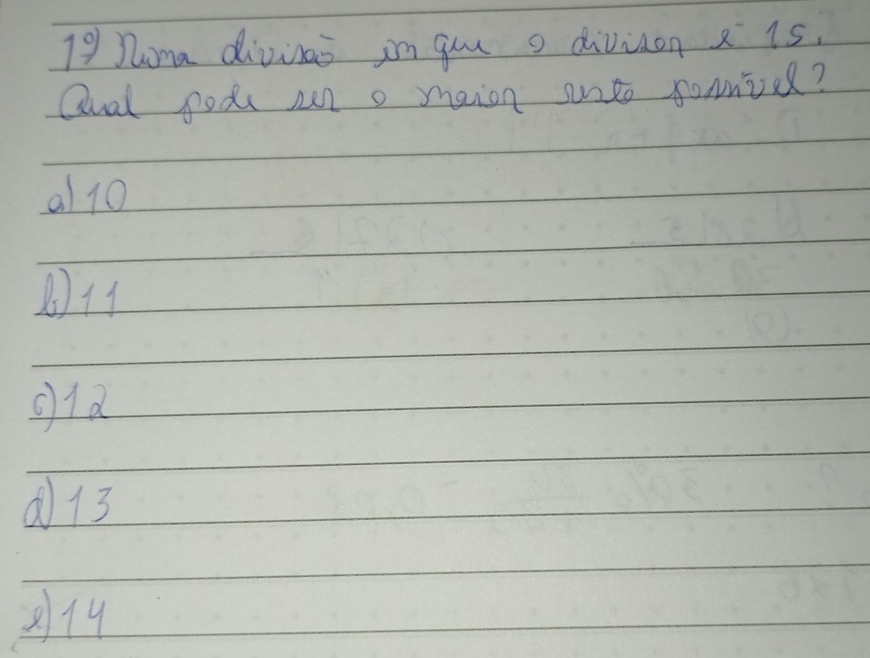 1º) Numa divisão em que o divisor é 15.
Qual pode ser o maior resto possível?
a) 10
b) 11
c) 12
d) 13
e) 14